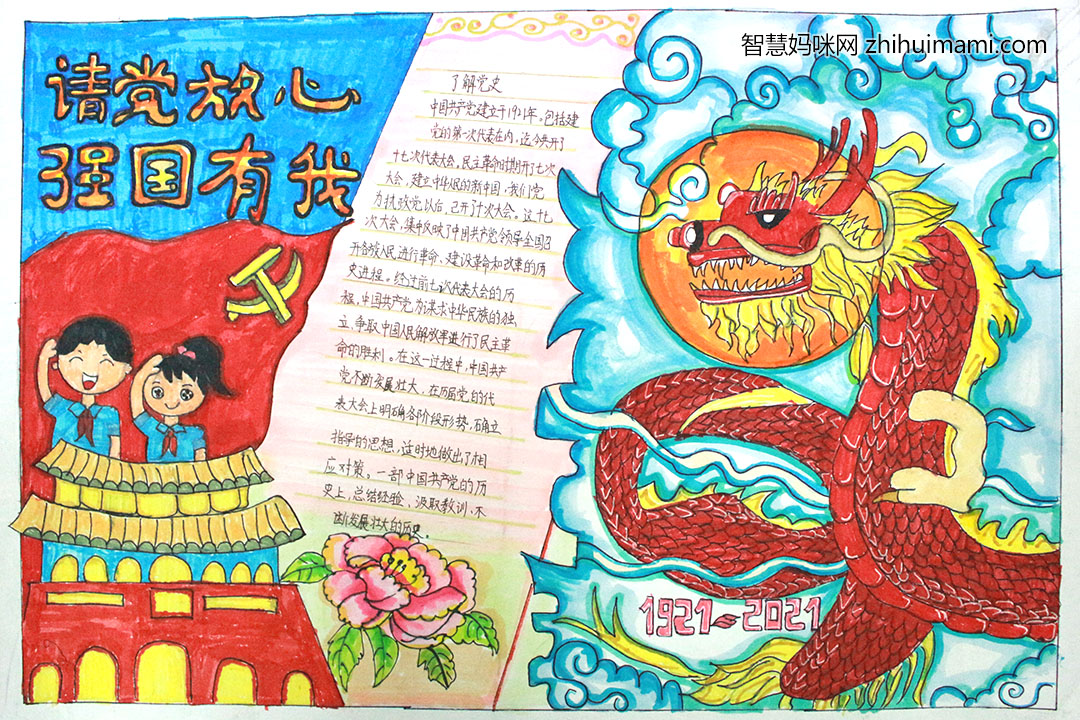 智慧妈咪网 zhihuimami.com
请党放心
强国有我
了解党史
中国共产党建立于1921年。包括建
党的第一次代表在内，迄今共开了
十七次代表大会，民主革命时期开了七次
大会，建立中华人民的新中国，我们党
为执政党以后，己开了十次大会。这十七
次大会，集中反映了中国共产党领导全国召
开各族人民进行革命、建设革命和改革的历
史进程。经过前七次代表大会的历
程，中国共产党为谋求中华民族的独
立，争取中国人民解放军进行了民主革
命的胜利。在这一过程中，中国共产
党不断发展壮大，在历届党的代
表大会上明确各阶段形势，确立
指导的思想，适时地做出了相
应对策。一部中国共产党的历
史上，总结经验、汲取教训、不
断发展壮大的历史。
1921-2021